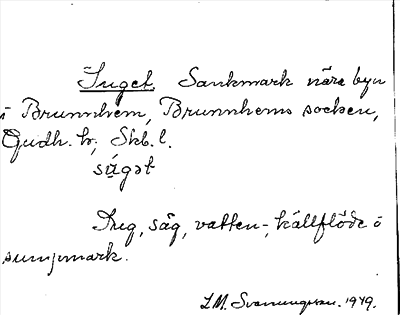 Suget Sankmark nära byn
i Brunnhem, Brunnhems socken,
Gudh. hr, Skb. l.
súgət
Sug, säg, vatten-, källflöde i
sumpmark.
L.M. Svanungsson. 1949.